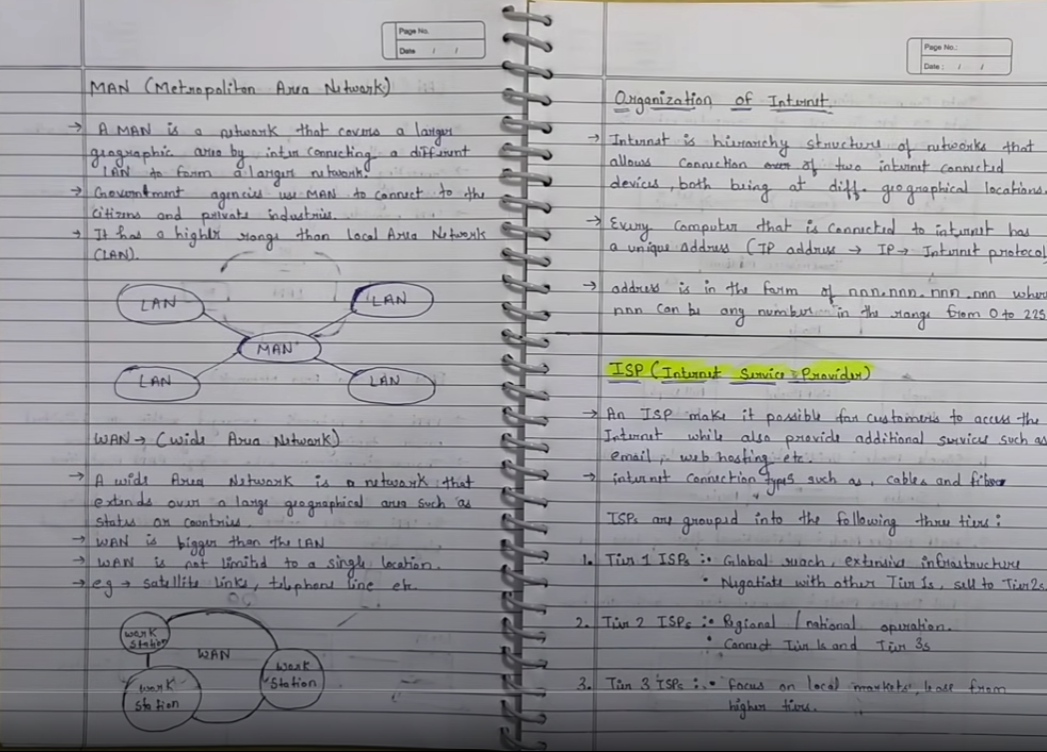 Page No.
Date / /
MAN (Metropoliton Area Network)
→ A MAN is a network that covers a larger
geographic area by inter connecting a different
LAN to form a larger network.
→ Government agencies use MAN to connect to the
citizens and private industries.
→ It has a higher range than Local Area Network
(LAN).
LAN
LAN
MAN
LAN
LAN
WAN → (Wide Area Network)
→ A wide Area Network is a network that
extends over a large geographical area such as
states or countries.
→ WAN is bigger than the LAN
→ WAN is not limited to a single location.
→ eg → satellite links, telephone line etc.
work
station
WAN
work
station
work
station
Page No.:
Date: / /
Organization of Internet.
→ Internet is hierarchy structure of networks that
allows connection of two internet connected
devices, both being at diff. geographical locations.
→ Every computer that is connected to internet has
a unique address (IP address → IP → Internet protocol
→ address is in the form of nnn.nnn.nnn.nnn where
nnn can be any number in the range from 0 to 225
ISP (Internet Service Provider)
→ An ISP make it possible for customers to access the
Internet while also provide additional services such as
email, web hosting etc.
→ internet connection types such as, cables and fiber
ISPs are grouped into the following three tiers:
1. Tier 1 ISPs :• Global reach, extensive infrastructure
• Negotiate with other Tier 1s, sell to Tier 2s.
2. Tier 2 ISPs :• Regional / national operation.
• Connect Tier 1s and Tier 3s
3. Tier 3 ISPs :• focus on local markets, lease from
higher tiers.